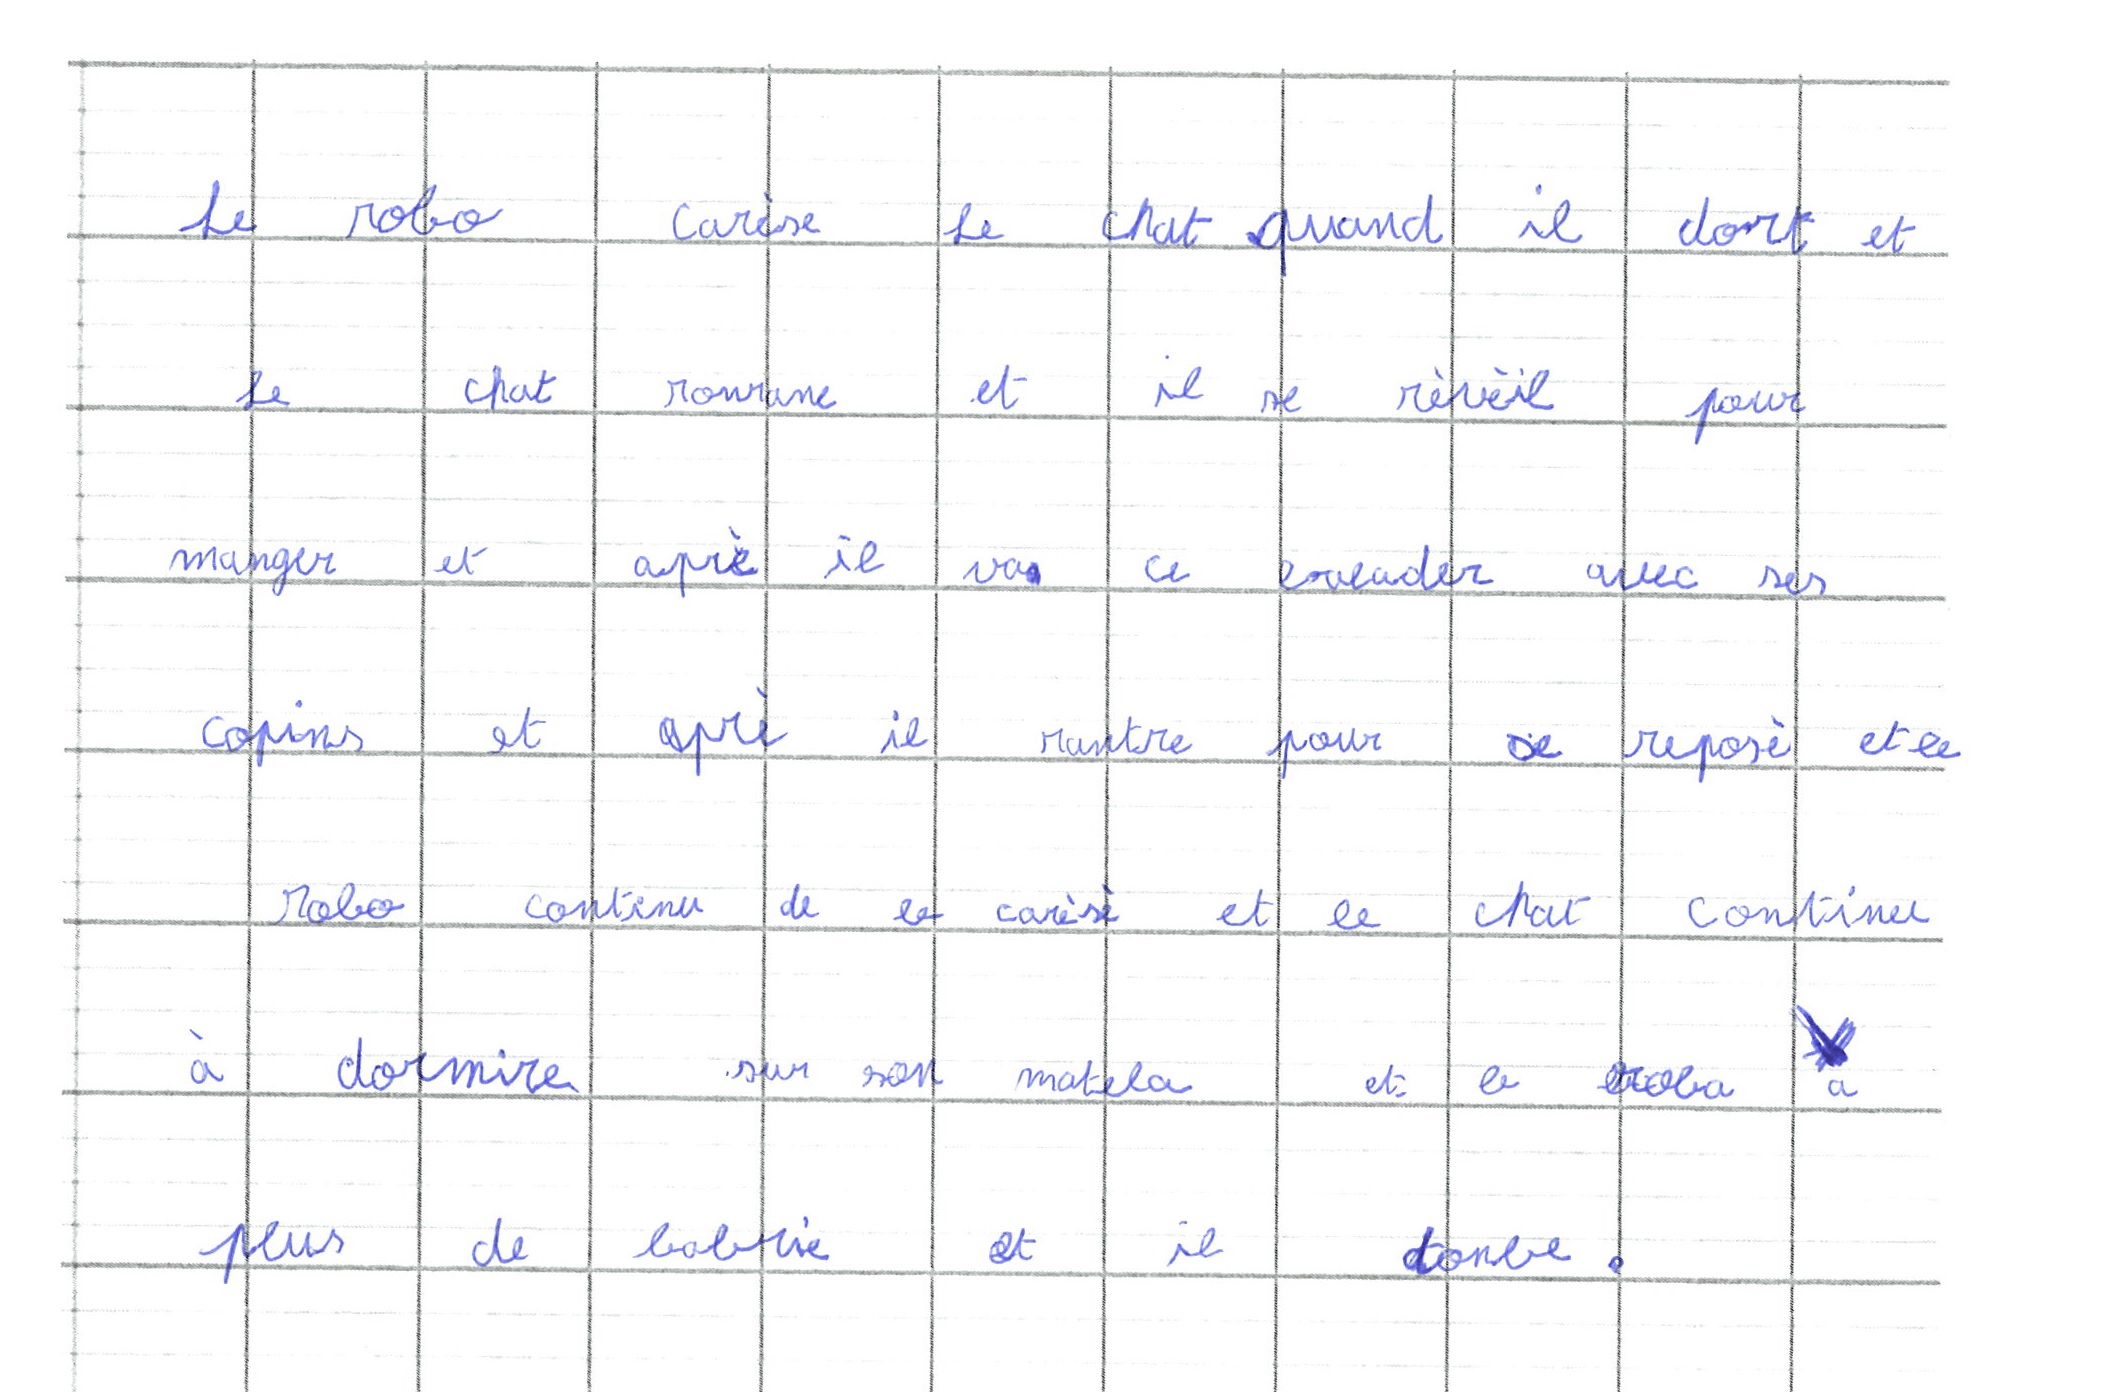 Le robo carèse Le chat quand il dort et
Le chat ronrone et il se rèvèil pour
manger et aprè il va ce avec ses
copins et aprè il rantre pour se reposè et le
robo contenu de le carèsè et le chat continu
à dormire sur son matela et le robo a
plus de batrie et il tonbe.